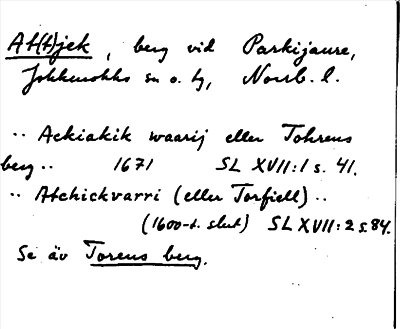 At(t)jek, berg vid Parkijaure,
Jokkmokks sn o. tg, Norrb. l.
·· Ackiakik waarij eller Tohrens
berg ·· 1671 SL XVII:1 s. 41.
·· Atchickvarri (eller Torfiell) ··
(1600-t. slut) SL XVII:2 s. 84.
Se äv Torens berg.